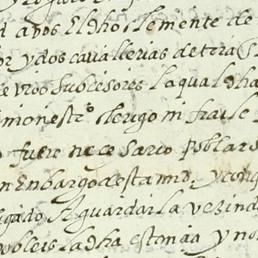 d a vos El dho clemente de
or y dos cavallerias de tierra
e vros subcesores la qual dha
monestro clerigo ni fraile
fuere necesario poblar
n Embargo desta mrd y con
igado A guardar la vezind
obleis la dha estancia y no